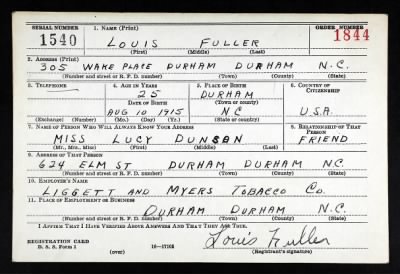 SERIAL NUMBER 1. NAME (Print) ORDER NUMBER
1540 LOUIS FULLER 1844
(First) (Middle) (Last)
2. ADDRESS (Print)
305 WAKE PLACE DURHAM DURHAM N.C.
(Number and street or R. F. D. number) (Town) (County) (State)
3. TELEPHONE 4. AGE IN YEARS 5. PLACE OF BIRTH 6. COUNTRY OF CITIZENSHIP
25 DURHAM
DATE OF BIRTH (Town or county)
AUG 10 1915 N.C. U.S.A.
(Exchange) (Number) (Mo.) (Day) (Yr.) (State or country)
7. NAME OF PERSON WHO WILL ALWAYS KNOW YOUR ADDRESS 8. RELATIONSHIP OF THAT PERSON
MISS LUCY FRIEND
(Mr., Mrs., Miss) (First) (Middle) (Last)
9. ADDRESS OF THAT PERSON
624 ELM ST DURHAM DURHAM N.C.
(Number and street or R. F. D. number) (Town) (County) (State)
10. EMPLOYER'S NAME
LIGGETT AND MYERS TOBACCO CO.
11. PLACE OF EMPLOYMENT OR BUSINESS
DURHAM DURHAM N.C.
(Number and street or R. F. D. number) (Town) (County) (State)
I AFFIRM THAT I HAVE VERIFIED ABOVE ANSWERS AND THAT THEY ARE TRUE.
REGISTRATION CARD Louis Fuller
D. S. S. Form 1 (over) 16-17105 (Registrant's signature)